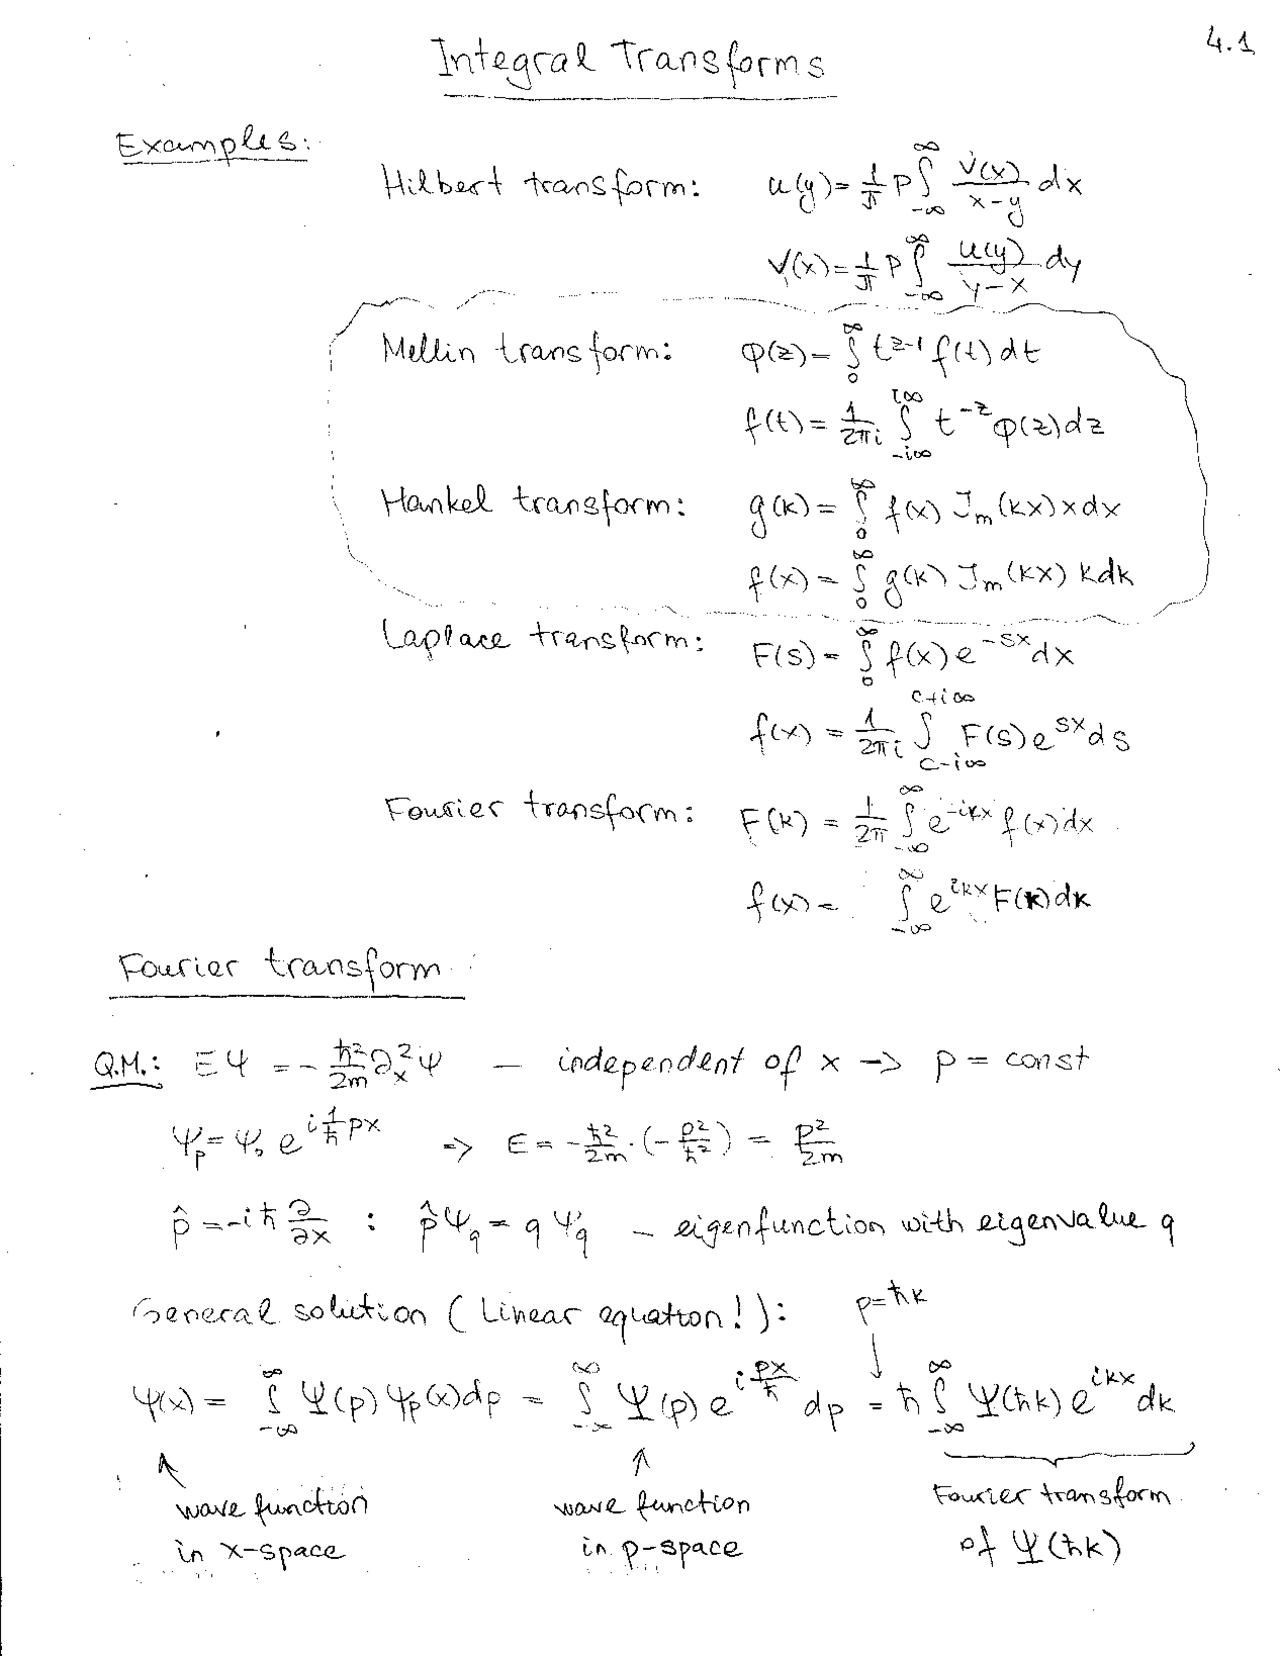 4.1
Integral Transforms
Examples:
Hilbert transform: u(y) = 1/π P ∫_{-∞}^{∞} v(x)/(x-y) dx
v(x) = 1/π P ∫_{-∞}^{∞} u(y)/(y-x) dy
Mellin transform: φ(z) = ∫_0^∞ t^{z-1} f(t) dt
f(t) = 1/2πi ∫_{-i∞}^{i∞} t^{-z} φ(z) dz
Hankel transform: g(k) = ∫_0^∞ f(x) J_m(kx) x dx
f(x) = ∫_0^∞ g(k) J_m(kx) k dk
Laplace transform: F(s) = ∫_0^∞ f(x) e^{-sx} dx
f(x) = 1/2πi ∫_{c-i∞}^{c+i∞} F(s) e^{sx} ds
Fourier transform: F(k) = 1/2π ∫_{-∞}^{∞} e^{-ikx} f(x) dx
f(x) = ∫_{-∞}^{∞} e^{ikx} F(k) dk
Fourier transform
Q.M.: EΨ = -ħ²/2m ∂_x² Ψ — independent of x → p = const
Ψ_p = Ψ_0 e^{i 1/ħ px} => E = -ħ²/2m · (-p²/ħ²) = p²/2m
p̂ = -iħ ∂/∂x : p̂Ψ_q = qΨ_q — eigenfunction with eigenvalue q
General solution (Linear equation!): p=ħk
ψ(x) = ∫_{-∞}^{∞} Ψ(p) ψ_p(x) dp = ∫_{-∞}^{∞} Ψ(p) e^{i px/ħ} dp = ħ ∫_{-∞}^{∞} Ψ(ħk) e^{ikx} dk
wave function wave function Fourier transform
in x-space in p-space of Ψ(ħk)